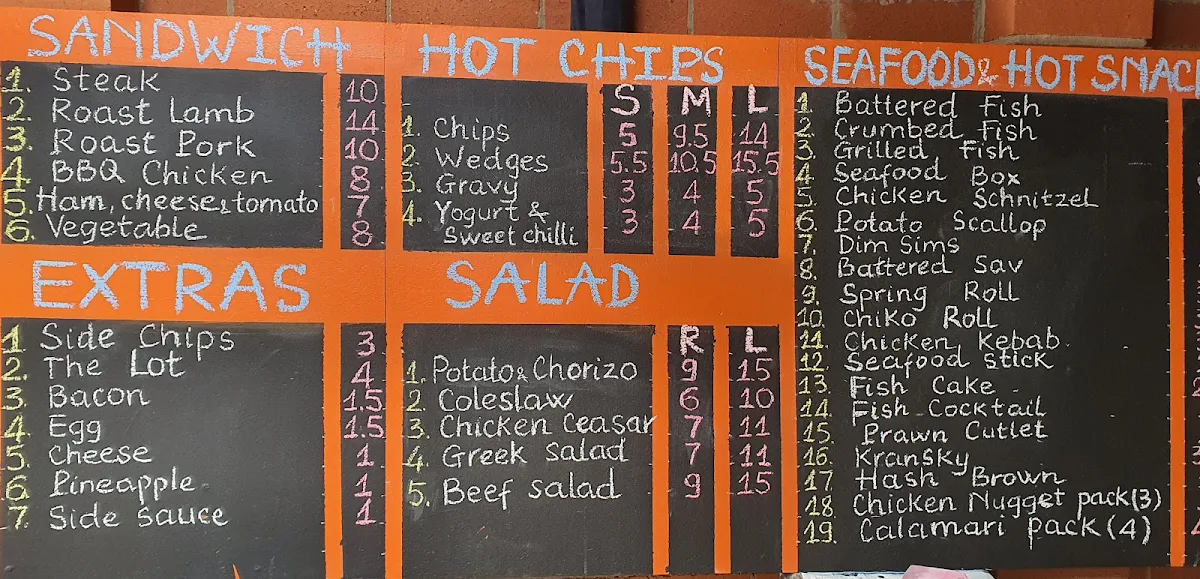 SANDWICH
1. Steak 10
2. Roast Lamb 14
3. Roast Pork 10
4. BBQ Chicken 8
5. Ham, cheese & tomato 7
6. Vegetable 8
EXTRAS
1. Side Chips 3
2. The Lot 4
3. Bacon 1.5
4. Egg 1.5
5. Cheese 1
6. Pineapple 1
7. Side Sauce 1
HOT CHIPS
S M L
1. Chips 5 9.5 14
2. Wedges 5.5 10.5 15.5
3. Gravy 3 4 5
4. Yogurt & 3 4 5
Sweet chilli
SALAD
R L
1. Potato & Chorizo 9 15
2. Coleslaw 6 10
3. Chicken Ceasar 7 11
4. Greek Salad 7 11
5. Beef salad 9 15
SEAFOOD & HOT SNAC
1. Battered Fish
2. Crumbed Fish
3. Grilled Fish
4. Seafood Box
5. Chicken Schnitzel
6. Potato Scallop
7. Dim Sims
8. Battered Sav
9. Spring Roll
10. Chiko Roll
11. Chicken Kebab
12. Seafood Stick
13. Fish Cake
14. Fish Cocktail
15. Prawn Cutlet
16. Kransky
17 Hash Brown
18 Chicken Nugget pack (3)
19. Calamari pack (4)